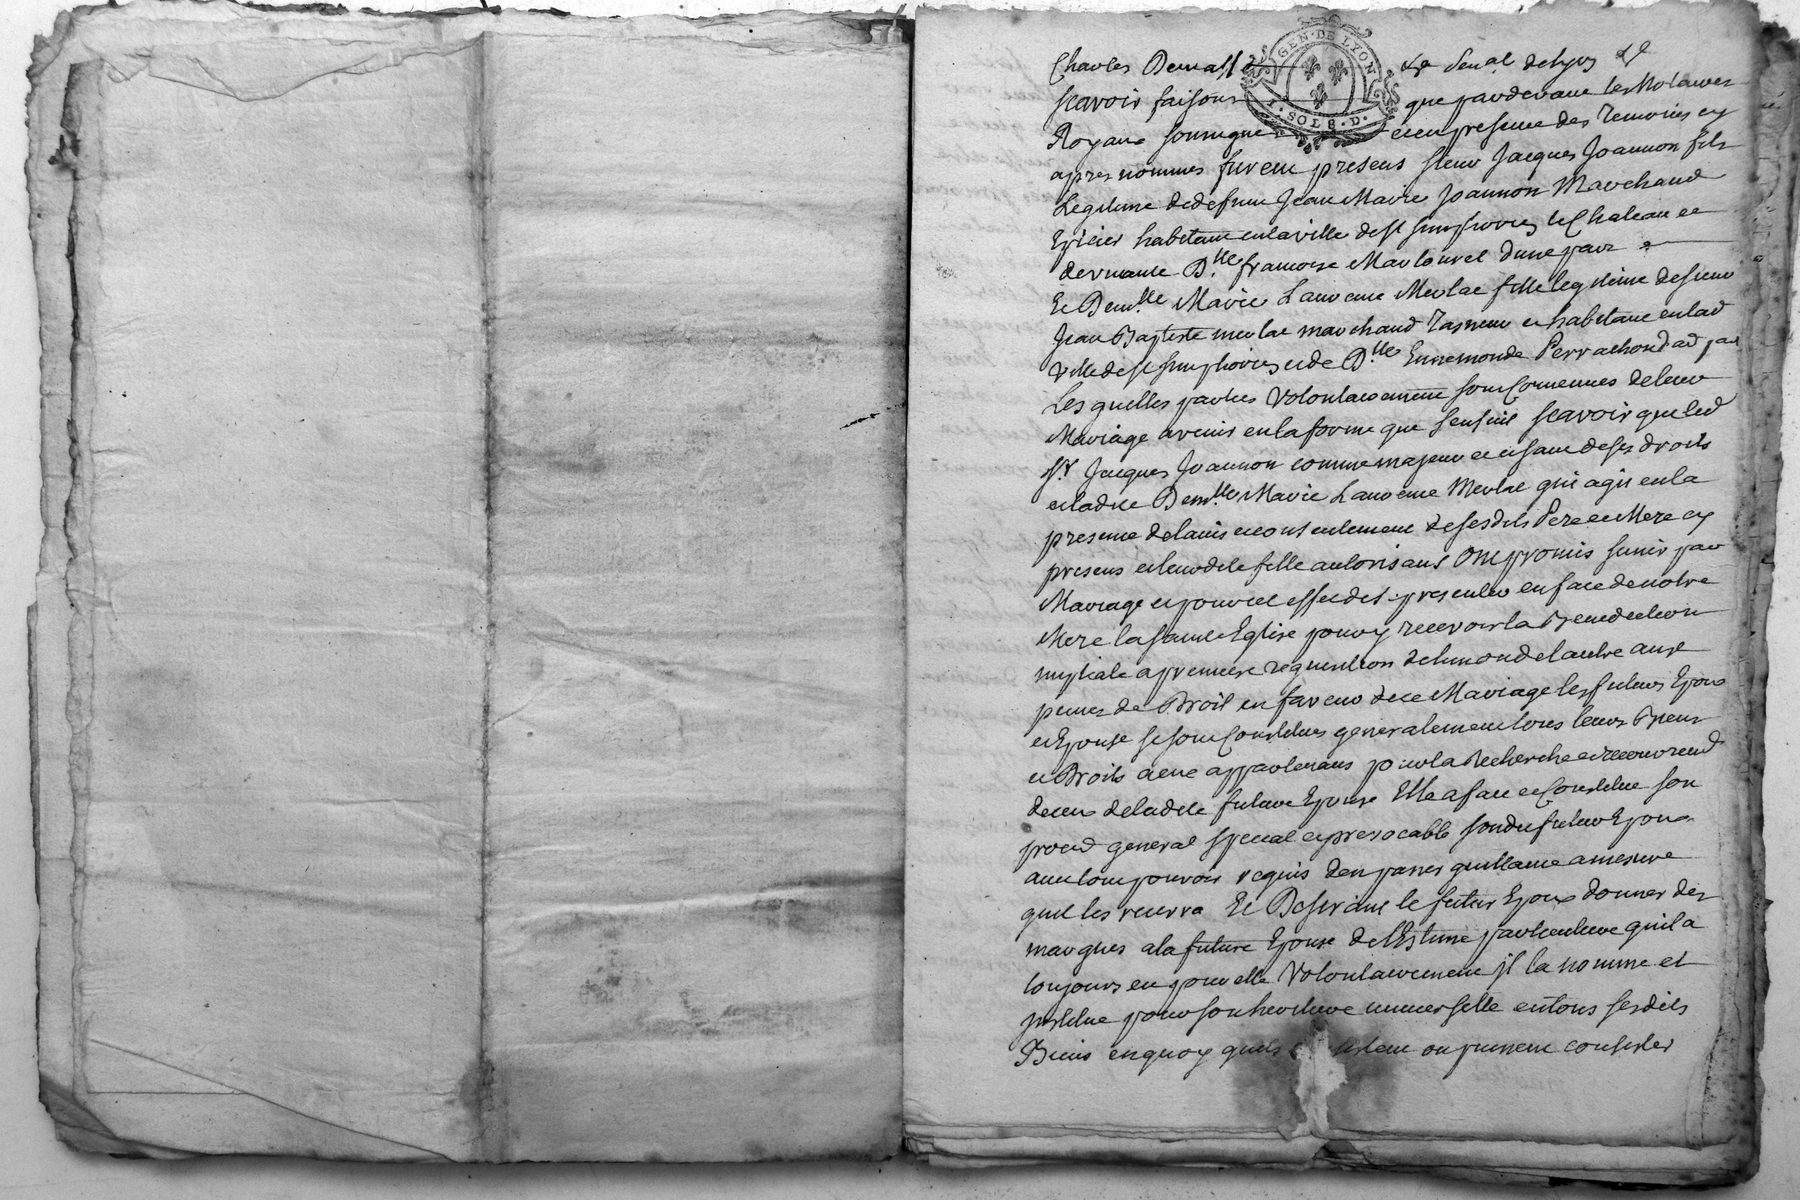 GEN · DE LYON
1 · SOL 8 · D ·
Charles Demasso &c Senal. de Lyon &c
scavoir faisons que pardevant les Notaires
Royaux soussignes et en presence des Temoins cy
apres nommes furent presens sieur Jacques Joannon fils
Legitime de defunt Jean Marie Joannon Marchand
Epicier habitant en la ville de st simphorien le Chateau et
de vivante D.lle francoise Marlourel d'une part
Et Demlle Marie Laurence Meulac fille legitime de sieur
Jean Baptiste meulac marchand Taneur et habitant en lad
ville de st simphorien et de D.lle Ennemonde Perrachon d'aut part
Les quelles parties volontairement sont Convenues de leur
Mariage avenir en la forme que s'ensuit scavoir que led
sr. Jacques Joannon comme majeur et usant de ses droits
et ladite Demlle Marie Laurence Meulac qui agit en la
presence de lavis et consentement de ses dits Pere et Mere cy
presens et leur dite fille autorisant Ont promis s'unir par
Mariage et pour cet effet de s presenter en face de notre
Mere la sainte Eglise pour y recevoir la Benediction
nuptiale a premiere requisition de l'un ou de l'autre aux
peines de Droit en faveur de ce Mariage les futurs Epoux
et Epouse se sont Constitues generalement tous leurs Biens
et Droits a eux appartenans pour la Recherche et recouvremd
de ceux de ladite future Epouse Elle a fait et Constitue son
procd general special et irrevocable sondit futur Epoux
avec tout pouvoir requis d'en passer quittance a mesure
quil les recevra Et Desirant le futur Epoux donner des
marques a la future Epouse de l'Estime particuliere qu'il a
toujours eu pour elle Volontairement jl la nomme et
jnstitue pour son heritiere universelle en tous ses dits
Biens en quoy quils consistent ou puissent consister